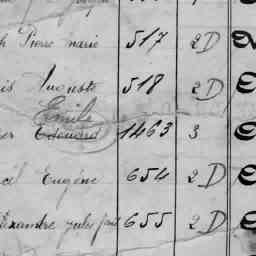 h Pierre marie 517 2D
is Auguste 518 2D
Emile
er Edouard 1463 3
cil Eugène 654 2D
lexandre jules 655 2D